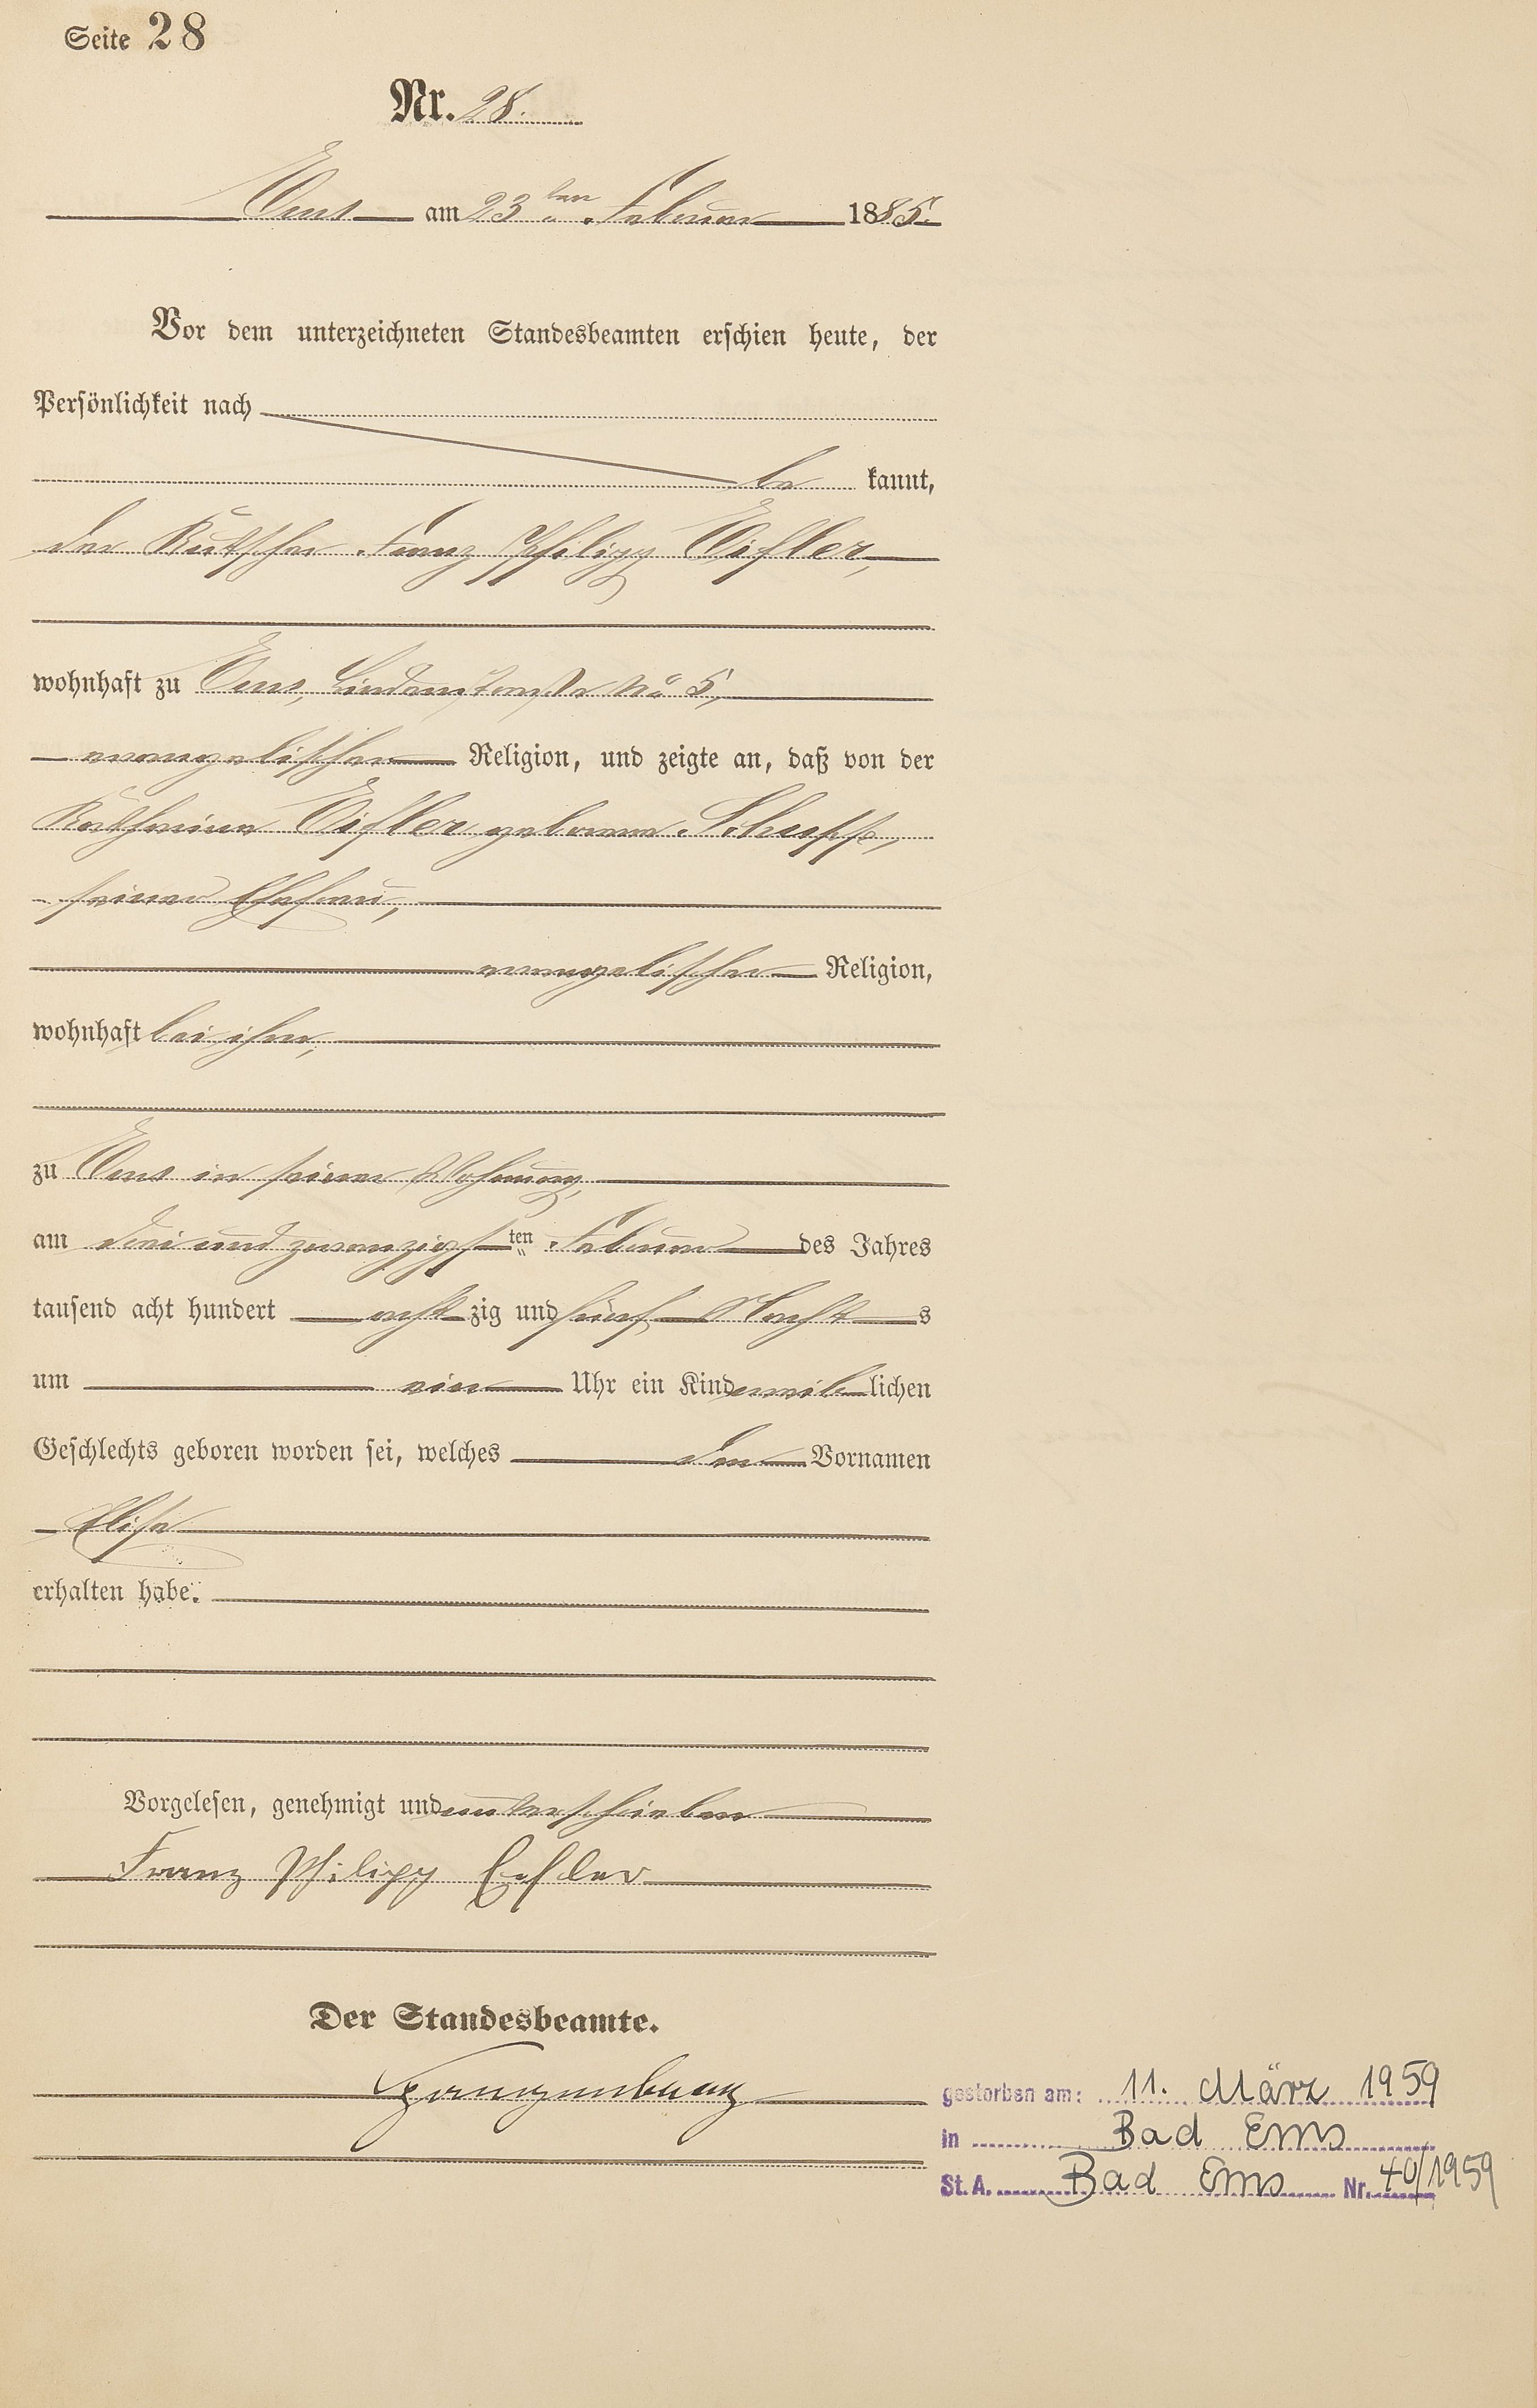 Seite 28
Nr. 28.
Ems am 23ten Februar 1885.
Vor dem unterzeichneten Standesbeamten erschien heute, der
Persönlichkeit nach
be kannt,
der Kutscher Franz Philipp Eifler,
wohnhaft zu Ems, Lindenstraße No 5,
evangelischer Religion, und zeigte an, daß von der
Katharina Eifler geborene Schupp,
seiner Ehefrau,
evangelischer Religion,
wohnhaft bei ihm,
zu Ems in seiner Wohnung,
am drei und zwanzigsten Februar des Jahres
tausend acht hundert acht zig und fünf Nachts
um ein Uhr ein Kind weiblichen
Geschlechts geboren worden sei, welches den Vornamen
Elise
erhalten habe.
Vorgelesen, genehmigt und unterschrieben
Franz Philipp Eifler
Der Standesbeamte.
gestorben am: 11. März 1959
in Bad Ems
St. A. Bad Ems Nr. 40/1959